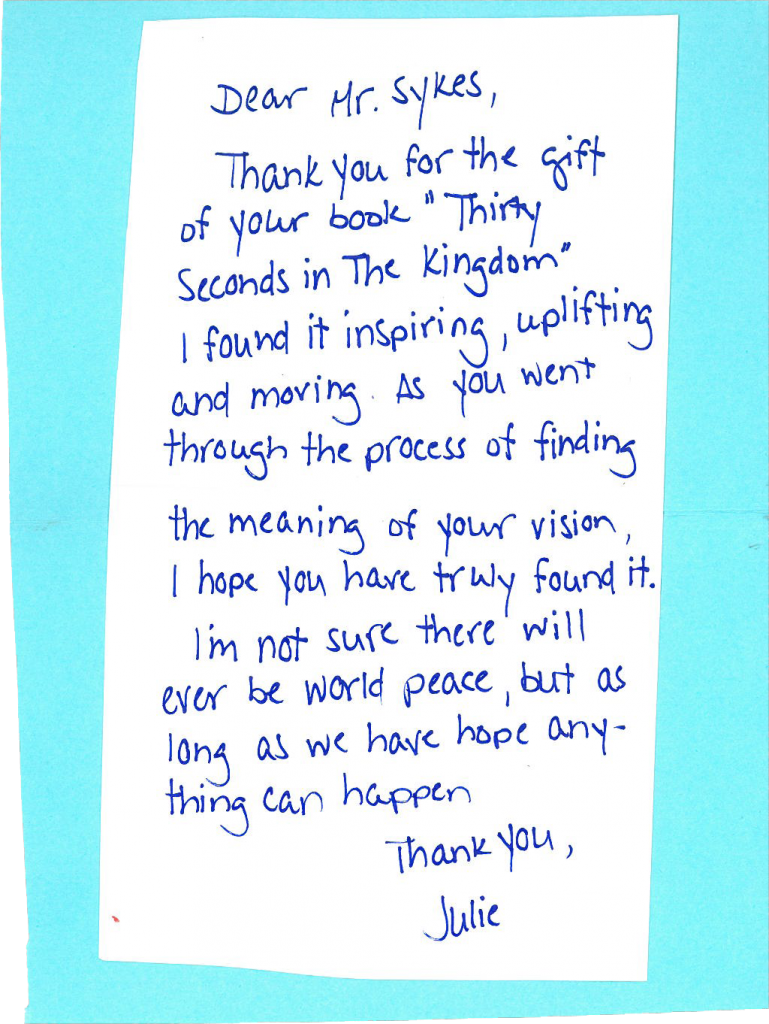 Dear Mr. Sykes,
Thank you for the gift
of your book "Thirty
Seconds in The Kingdom"
I found it inspiring, uplifting
and moving. As you went
through the process of finding
the meaning of your vision,
I hope you have truly found it.
I'm not sure there will
ever be world peace, but as
long as we have hope any-
thing can happen
Thank you,
Julie